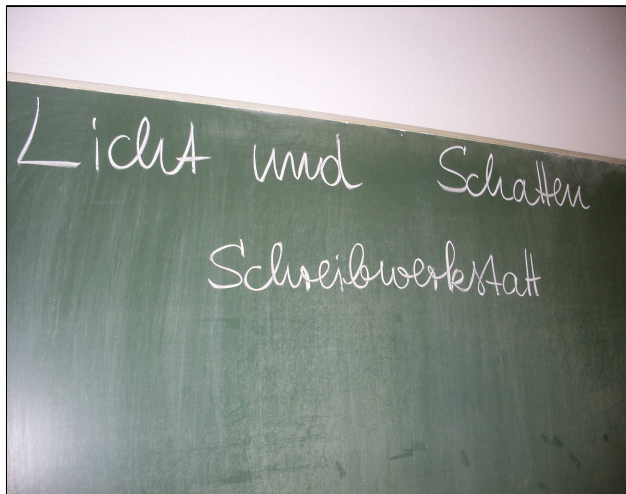 Licht und Schatten
Schreibwerkstatt